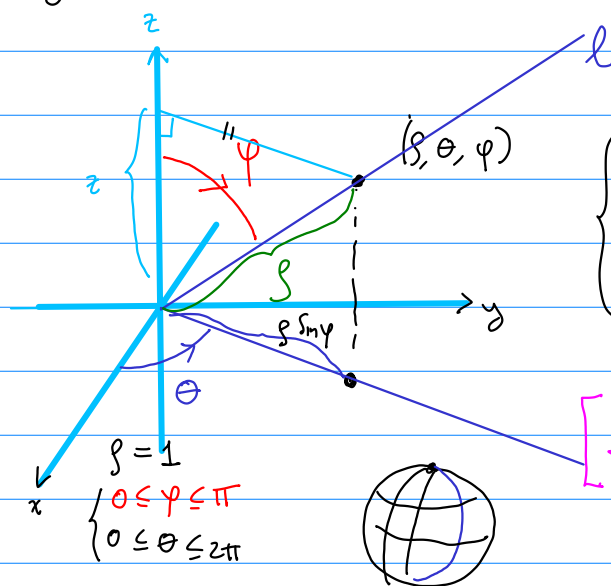 z
l
(ρ, θ, φ)
φ
z
ρ
y
ρ sinφ
θ
x
ρ = 1
0 ≤ φ ≤ π
0 ≤ θ ≤ 2π